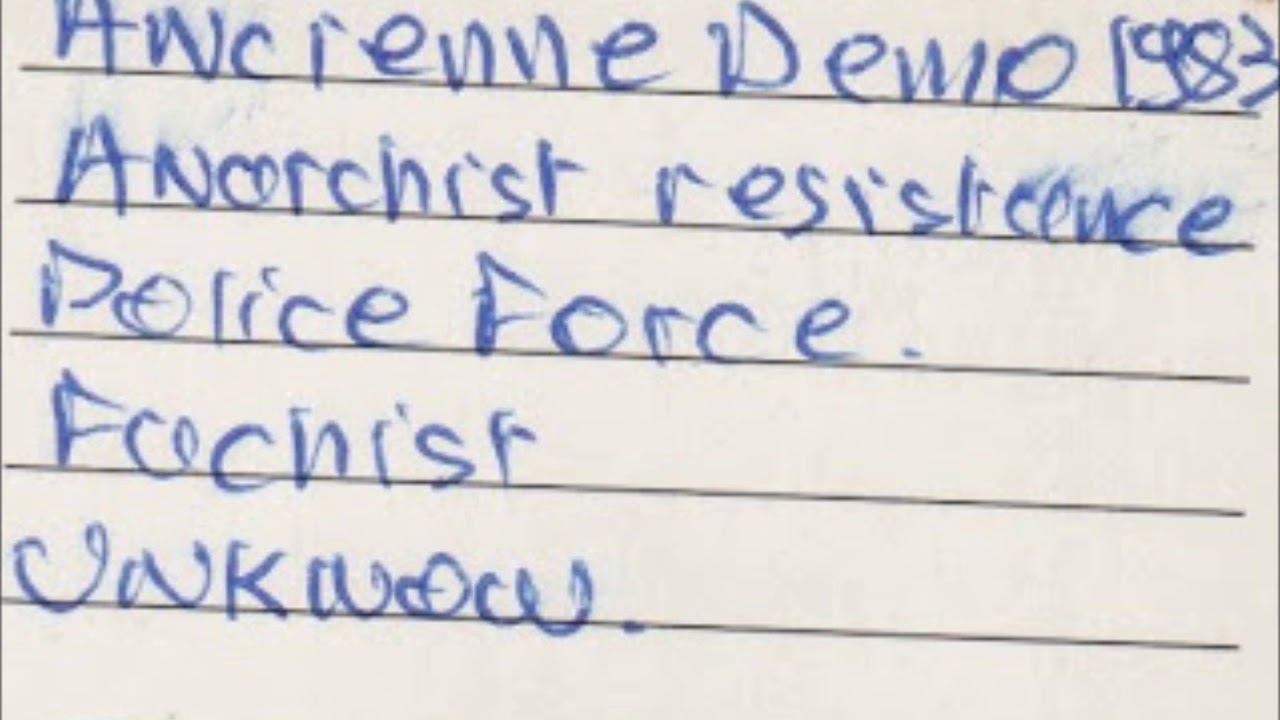 Ancienne Demo 1983
Anarchist resistance
Police Force.
Fachist
Unknow.